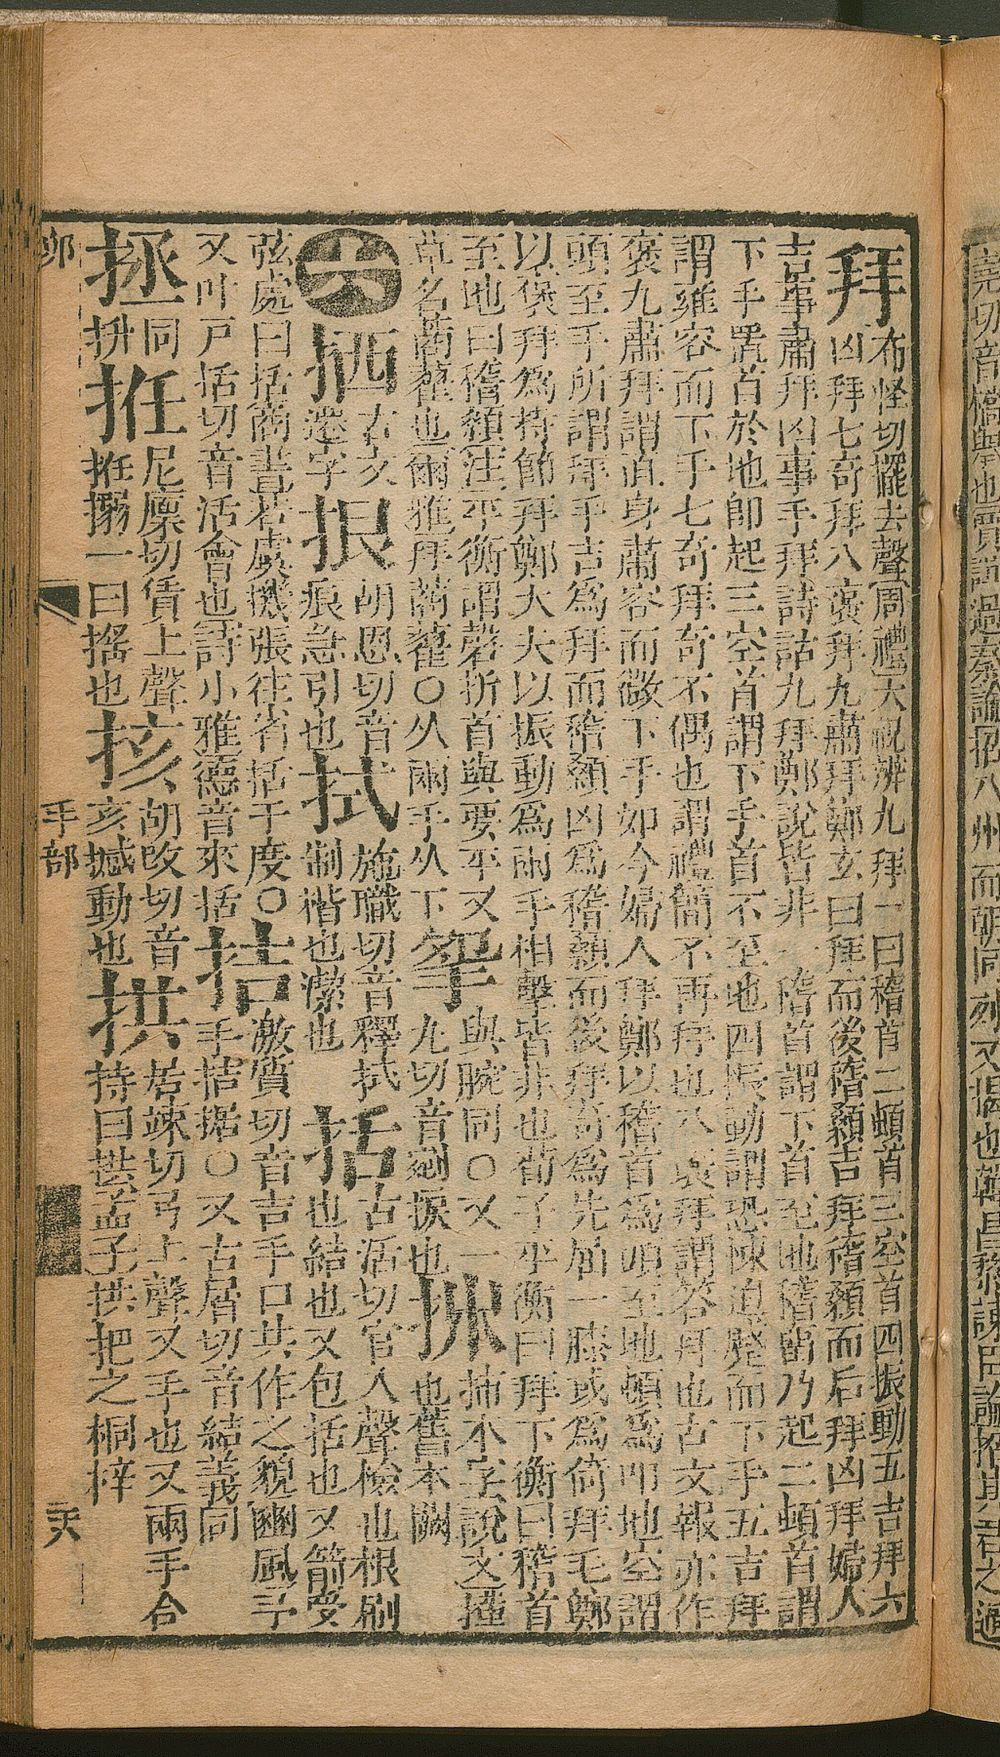 堯切音橋舉也賈誼過秦論招八州而朝同列又揭也韓昌黎諫臣論招其君之過
拜布怪切擺去聲周禮大祝辨九拜一曰稽首二頓首三空首四振動五吉拜六
凶拜七奇拜八褒拜九肅拜鄭玄曰拜而後稽顙吉拜稽顙而后拜凶拜婦人
吉事肅拜凶事手拜詩詁九拜鄭說皆非一稽首謂下首至地稽留乃起二頓首謂
下手置首於地卽起三空首謂下手首不至地四振動謂恐悚迫蹙而下手五吉拜
謂雍容而下手七奇拜奇不偶也謂禮簡不再拜也八褒拜謂荅拜也古文報亦作
褒九肅拜謂直身肅容而微下手如今婦人拜鄭以稽首爲頭至地頓爲叩地空謂
頭至手所謂拜手吉爲拜而稽顙凶爲稽顙而後拜奇爲先屈一膝或爲倚拜毛鄭
以褒拜爲持節拜鄭大夫以振動爲兩手相擊皆非也荀子平衡曰拜下衡曰稽首
至地曰稽顙注平衡謂磬折首與要平又
草名蔏藋也爾雅拜蔏藋○从兩手从下
與腕同○又一
丸切音剜捩也
插本字說文撞
也舊本闕
六
拪古文
遷字
拫胡恩切音
痕急引也
拭施職切音釋拭
刷揩也潔也
括古活切官入聲檢也根刷
也結也又包括也又箭受
弦處曰括商書若虞機張往省括于度○
又叶戸括切音活會也詩小雅德音來括
拮激質切音吉手口共作之貌豳風予
手拮据○又古屑切音結義同
拯同
抍
拰尼廩切賃上聲
拰搦一曰搖也
㧡胡改切音
亥撼動也
拱居竦切弓上聲叉手也又兩手合
持曰拱孟子拱把之桐梓
卯 手部